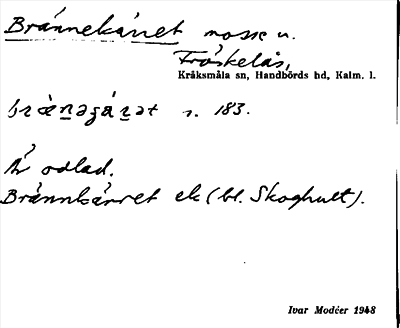 Brännekärret mosse u.
Fröskelås,
Kråksmåla sn, Handbörds hd, Kalm. l.
s. 183.
Är odlad.
Brännkärret ek (bl. Skoghult).
Ivar Modéer 1948